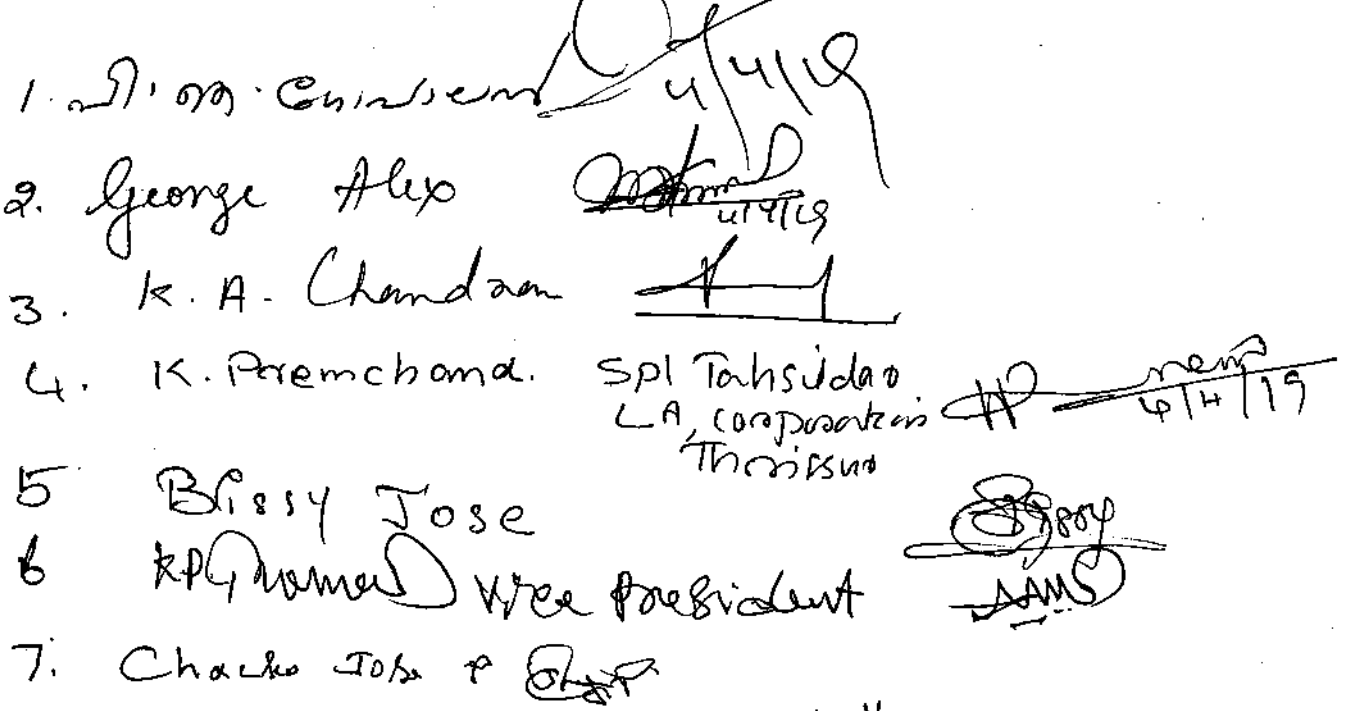 1. വി. ആ. 4/4/19
2. George Alex 4/4/19
3. K. A. Chandran
4. K. Premchand. Spl Tahsildar
LA, Corporation 4/4/19
Thrissur
5 Blissy Jose Blissy
6 K P Thomas Vice President
7. Chacko Jose P